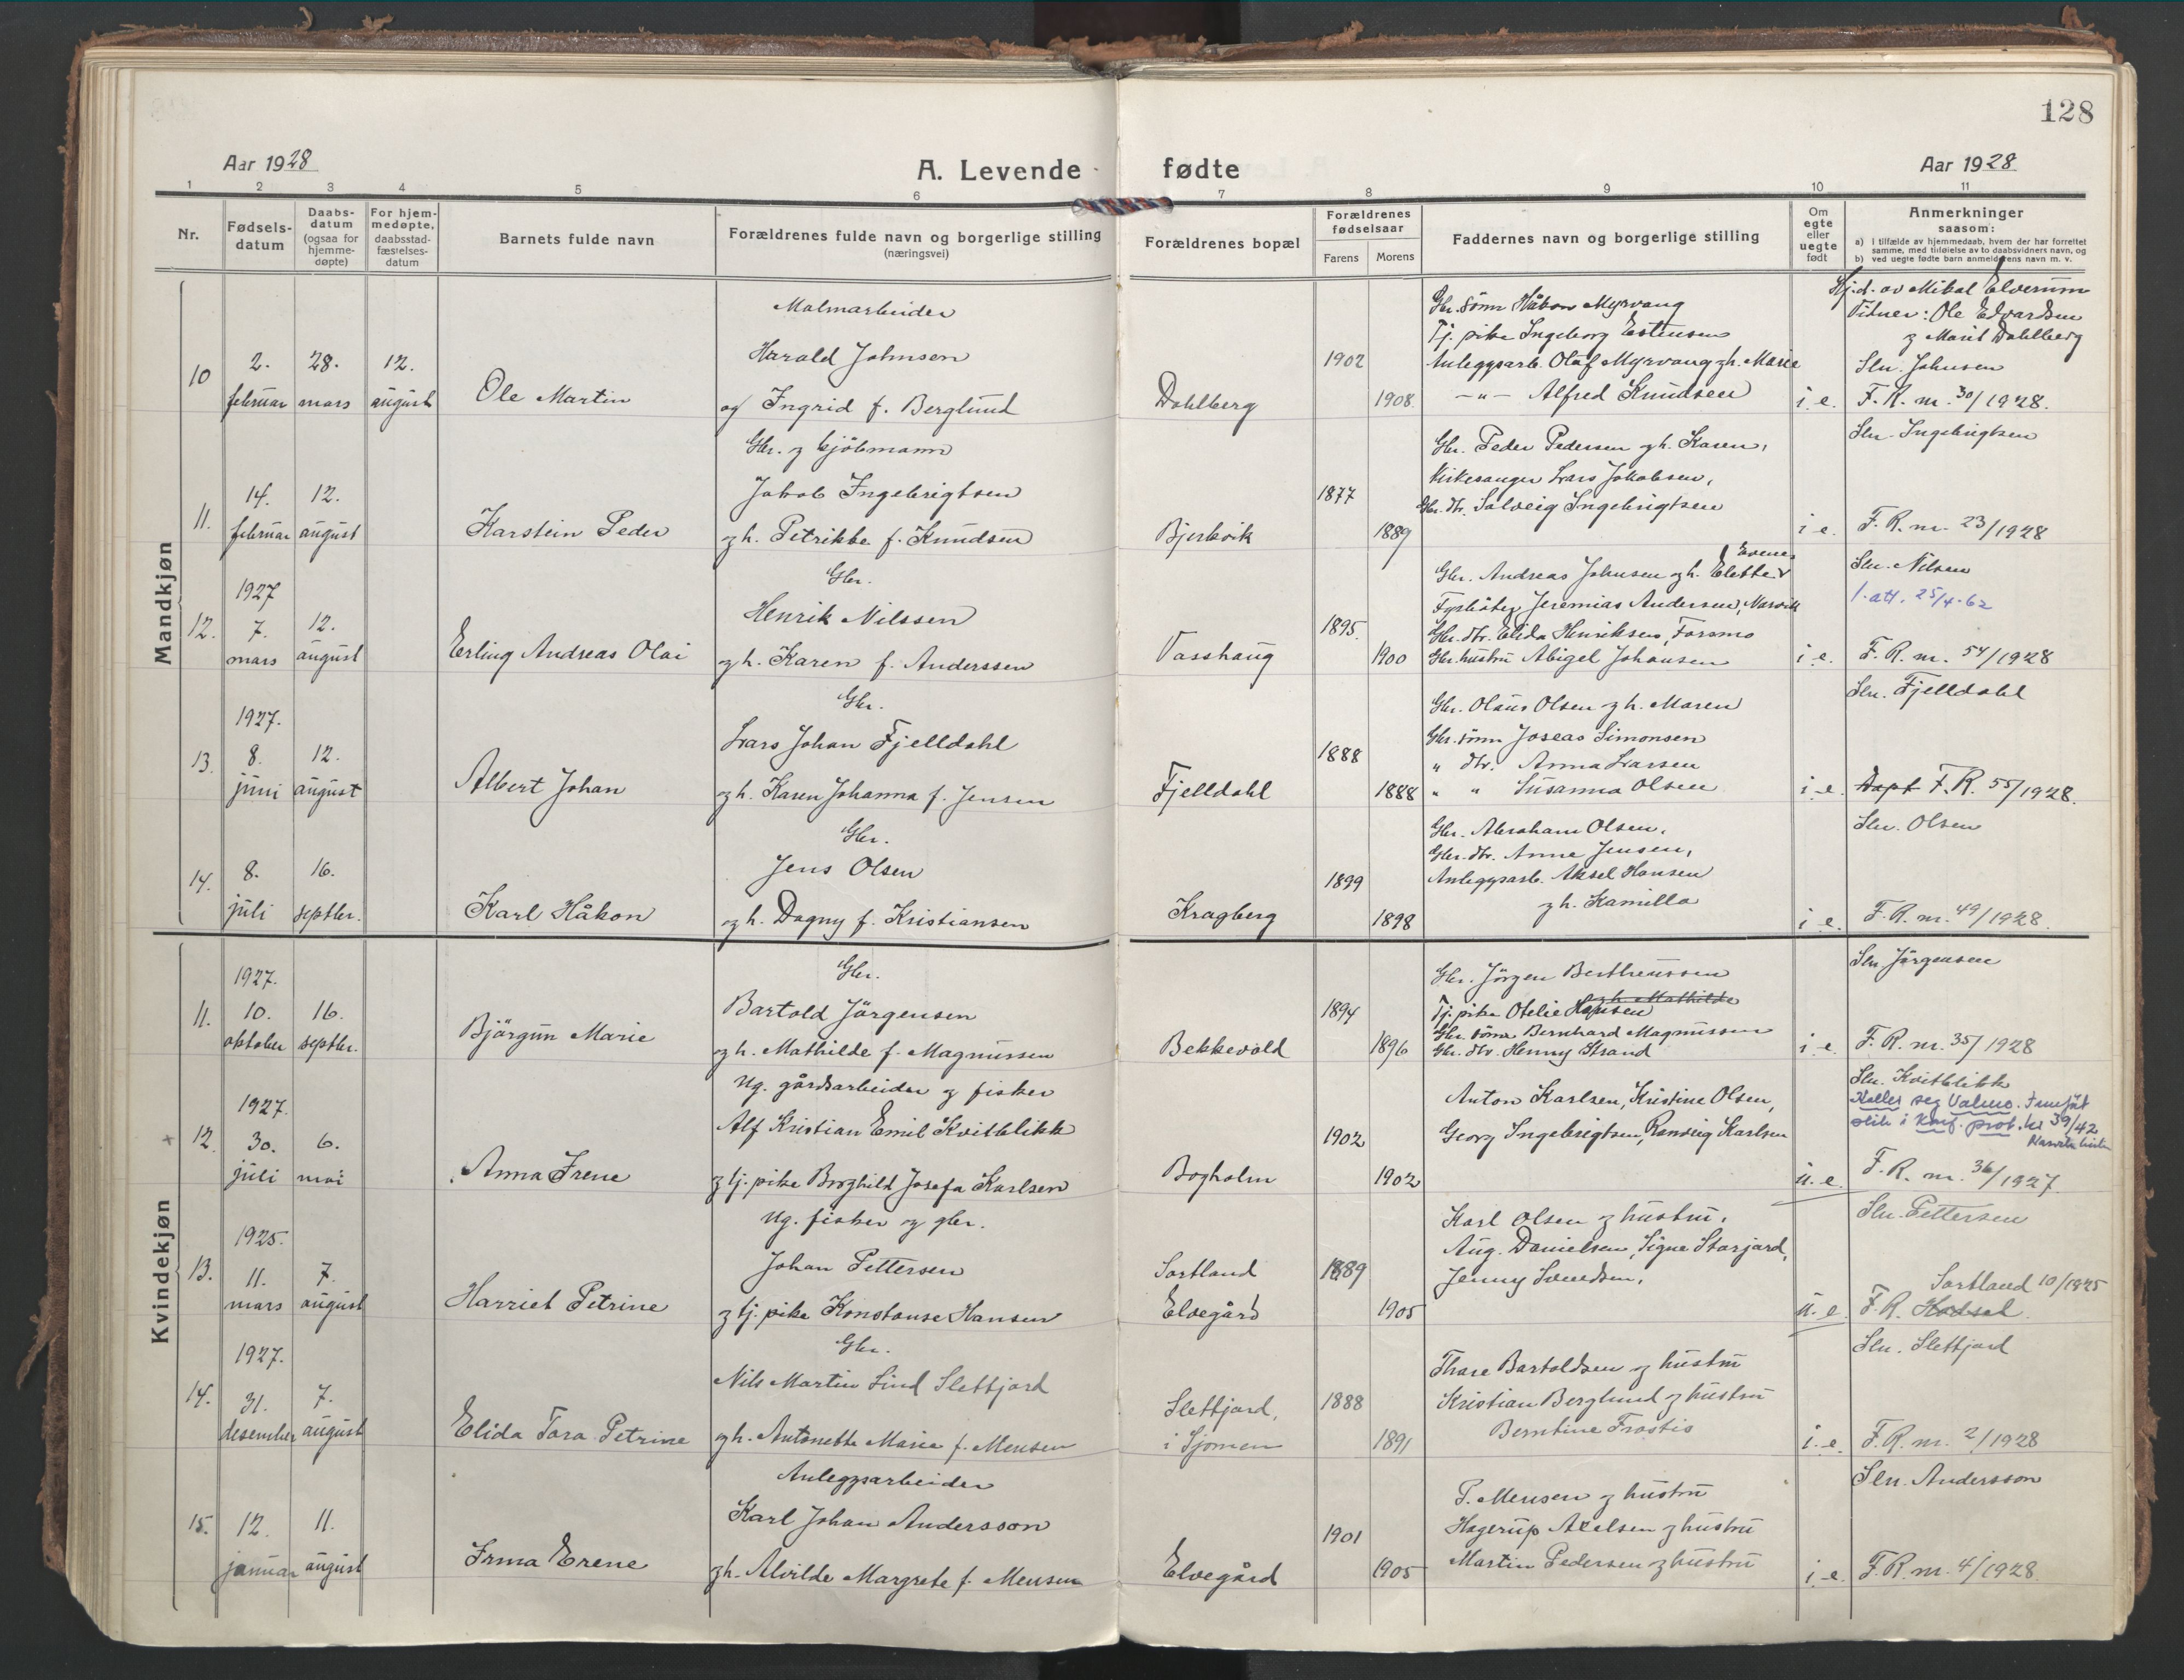 128
Aar 1928
A. Levende fødte
Aar 1928
1 2 3 4 5 6 7 8 9 10 11
Nr.
Fødsels-
datum
Daabs-
datum
(ogsaa for
hjemme-
døpte)
For hjem-
medøpte,
daabsstad-
fæstelses-
datum
Barnets fulde navn
Forældrenes fulde navn og borgerlige stilling
(næringsvei)
Forældrenes bopæl
Forældrenes
fødselsaar
Farens Morens
Faddernes navn og borgerlige stilling
Om
egte
eller
uegte
født
Anmerkninger
saasom:
a) i tilfælde av hjemmedaab, hvem der har forrettet
samme, med tilføielse av to daabsvidners navn, og
b) ved uegte fødte barn anmelderens navn m. v.
Mandkjøn
10
2.
februar
28.
mars
12.
august
Ole Martin
Malmarbeider
Harald Johnsen
og Ingrid f. Berglund
Dahlberg
1902
1908
Gbr. sønn Håkon Myrvang
Tj. pike Ingeborg Estensen
Anleggsarb. Olaf Myrvang gh. Marie
-"- Alfred Knudsen
i. e.
Hj.d. av Mikal Elverum
Vitner: Ole Edvardsen
g Marit Dahlberg
Sln. Johnsen
F. R. nr. 30/1928.
11.
14.
februar
12.
august
Karstein Peder
Gbr. g kjöbmann
Jakob Ingebrigtsen
gh. Petrikke f. Knudsen
Bjerkvik
1877
1889
Gbr. Peder Pedersen gh. Karen,
Kirkesanger Lars Jakobsen,
Gbr. dtr. Solveig Ingebrigtsen
i e.
Sln. Ingebrigtsen
F. R. nr. 23/1928
12.
1927
7.
mars
12.
august
Erling Andreas Olai
Gbr.
Henrik Nilssen
gh. Karen f. Anderssen
Vasshaug
1895.
1900
Evenes
Gbr. Andreas Johnsen gh. Elette
Fyrbøter Jeremias Andersen, Narvik
Gbr. dtr. Elida Henriksen, Forsmo
Gbr. hustru Abigel Johansen
i. e.
Sln. Nilsen
1. att. 25/4-62
F. R. nr. 54/1928
13.
1927.
8.
juni
12.
august
Albert Johan
Gbr.
Lars Johan Fjelldahl
gh. Karen Johanna f. Jensen
Fjelldahl
1888
1888
Gbr. Olaus Olsen gh. Maren
Gbr. sønn Joseas Simonsen
" dtr. Anna Larsen
" " Susanna Olsen
i. e.
Sln. Fjelldahl
Døpt F. R. 55/1928.
14.
8.
juli
16.
septbr.
Karl Håkon
Gbr.
Jens Olsen
gh. Dagny f. Kristiansen
Kragberg
1899
1898
Gbr. Abraham Olsen,
Gbr. dtr. Anne Jensen,
Anleggsarb. Aksel Hansen
gh. Kamilla
i e.
Sln. Olsen
F. R. nr. 49/1928.
Kvindekjøn
11.
1927.
10.
oktober
16.
septbr.
Bjärgun Marie
Gbr.
Bartold Jörgensen
gh. Mathilde f. Magnussen
Bekkevold
1894
1896
Gbr. Jörgen Bertheussen
gh. Mathilde
Tj. pike Otelie Hansen
Gbr. sønn Bernhard Magnussen
Gbr. dtr. Henny Strand
i e.
Sln Jörgensen
F. R. nr. 35/1928
12.
1927.
30.
juli
6.
mai
Anna Irene
Ug. gårdsarbeider g fisker
Alf Kristian Emil Kvitblikk
g tj. pike Borghild Josefa Karlsen
Bogholm
1902
1902
Anton Karlsen, Kristine Olsen,
Georg Ingebrigtsen, Ranveig Karlsen
u. e.
Sln. Kvitblikk
Kaller seg Valmo.
i Konf. prot. 39/42
F. R. nr. 36/1927.
13.
1925.
11.
mars
7.
august
Harriet Petrine
Ug. fisker og gbr.
Johan Pettersen
g tj. pike Konstanse Hansen
Sortland
Elvegård
1889
1905
Karl Olsen g hustru,
Aug. Danielsen, Signe Storjord,
Jenny Svendsen,
u. e.
Sln. Pettersen
Sortland 10/1925
F. R. Hadsel
14.
1927.
31.
desember
7.
august
Elida Tora Petrine
Gbr.
Nils Martin Lind Slettjord
gh. Antonette Marie f. Mensen
Slettjord,
i Sjomen
1888
1891
Thore Bartoldsen g hustru
Kristian Berglund g hustru
Berntine Frostis
i. e.
Sln. Slettjord
F. R. nr. 2/1928
15.
12.
januar
11.
august
Irma Erene
Anleggsarbeider
Karl Johan Andersson
gh. Alvilde Margrete f. Mensen
Elvegård
1901
1905
P. Mensen g hustru
Hagerup Axelsen g hustru
Martin Pedersen g hustru
i. e.
Sln. Andersson
F. R. nr. 4/1928.